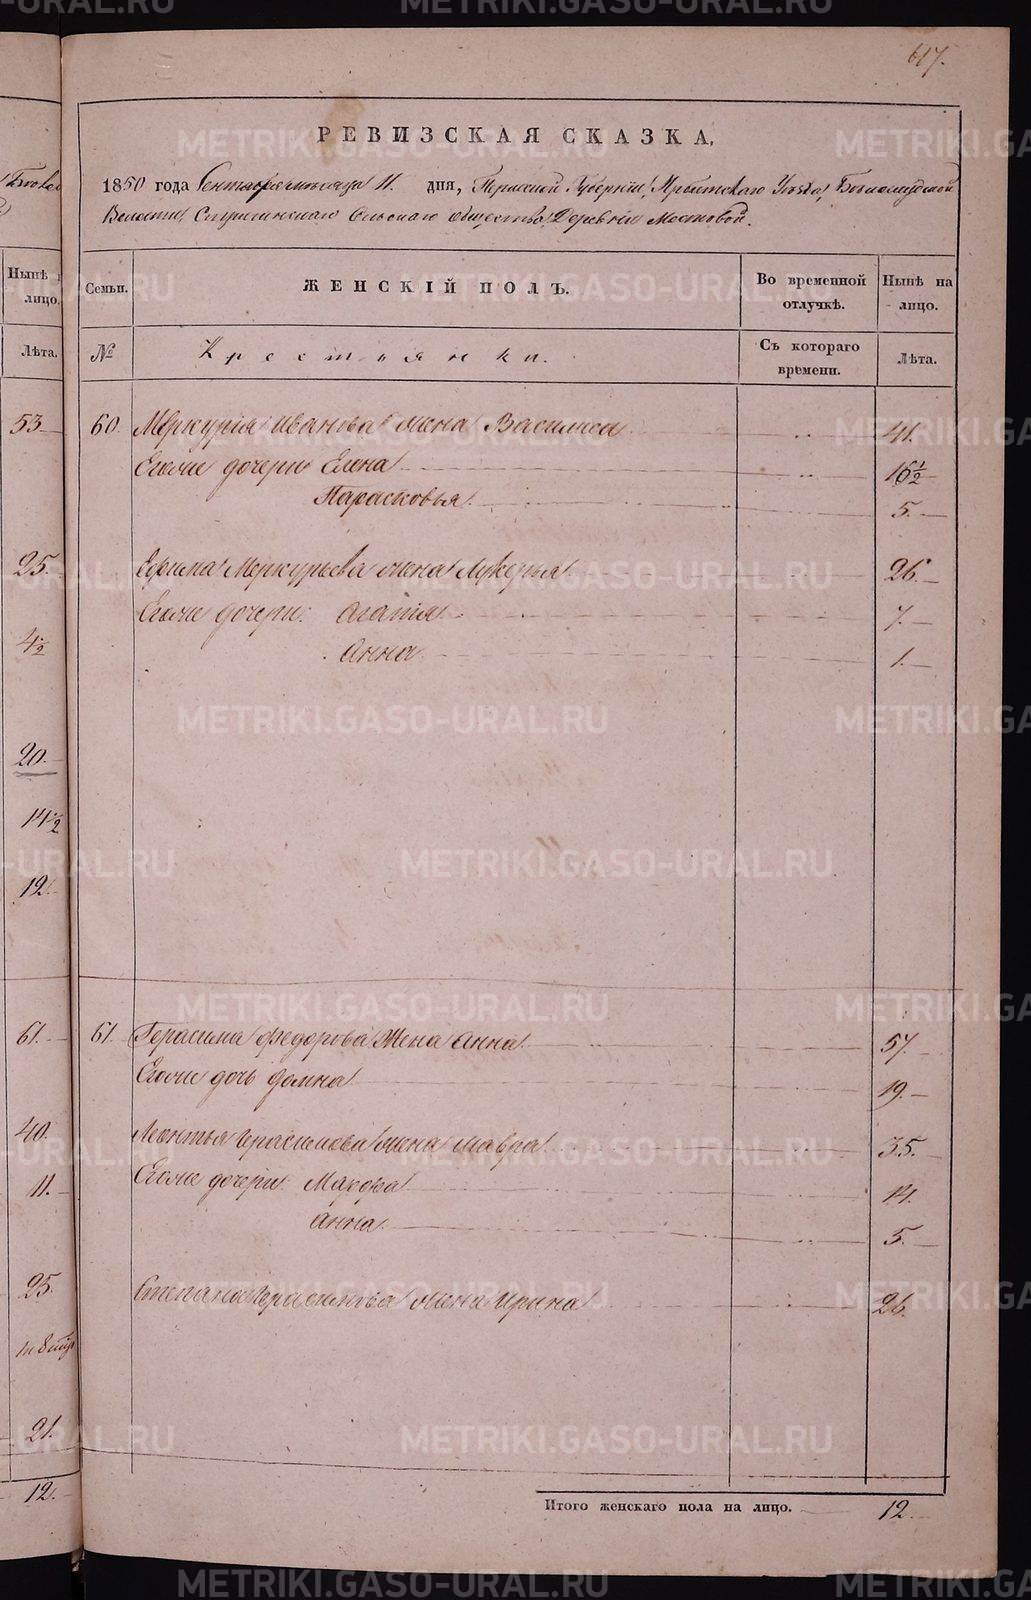 METRIKI.GASO-URAL.RU
617.
РЕВИЗСКАЯ СКАЗКА,
1850 года Сентября месяца 11. дня, Пермской Губернии, Ирбитскаго Уезда,
Волости, Сельскаго общества, Деревни Мостовой.
Нынѣ
лицо.
Семьи.
ЖЕНСКІЙ ПОЛЪ.
Во временной отлучкѣ.
Нынѣ на лицо.
Лѣта.
№
Крестьянки.
Съ котораго времени.
Лѣта.
53 60. Меркурія Иванова жена Василиса 41.
Его же дочери Елена 16 1/2
Парасковья 5.
25. Ефима Меркурьева жена Лукерья 26.
Его же дочери: Агатія 7.
4 1/2
Анна 1.
20.
14 1/2
12.
61. 61. Герасима Федорова Жена Анна 57.
Его же дочь Домна 19.
40. Леонтья Герасимова жена Мавра 35.
11. Его же дочери: Макора 14.
Анна 5.
25. Степана Герасимова жена Ирина 26.
21.
12.
Итого женскаго пола на лицо. 12.